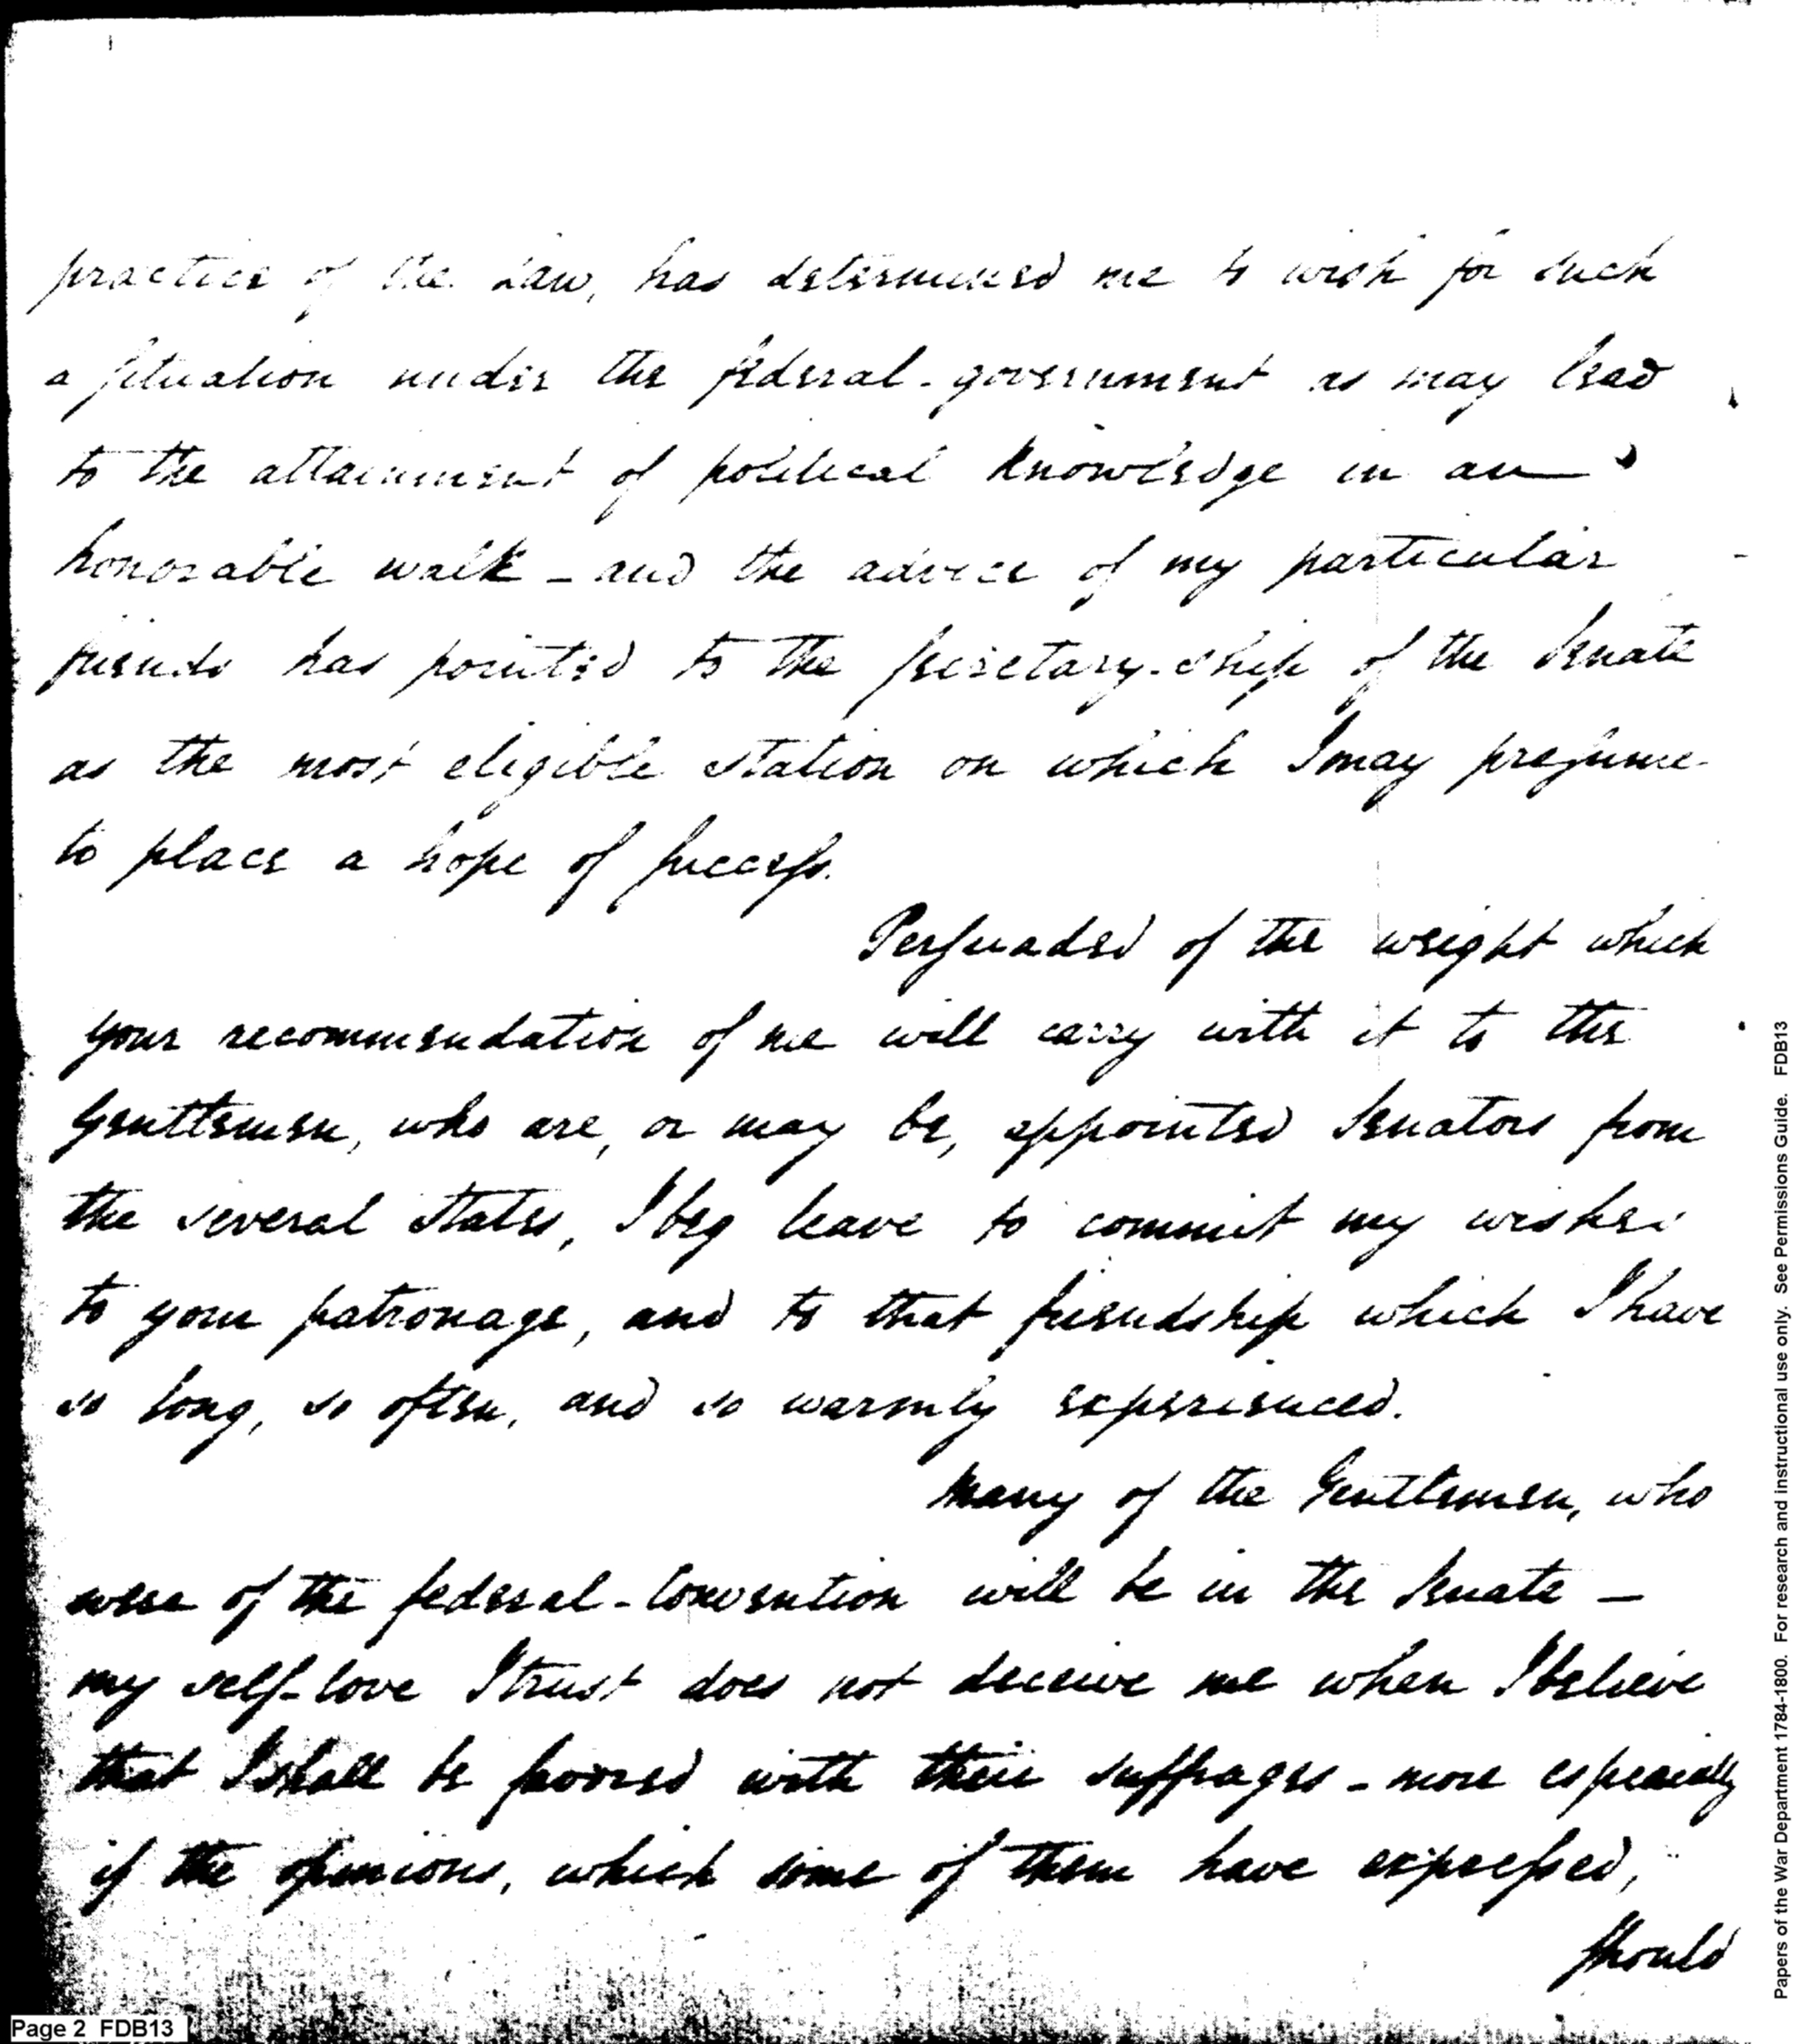 practice of the Law, has determined me to wish for such
a situation under the federal-government as may lead
to the attainment of political knowledge in an
honorable walk - and the advice of my particular
friends has pointed to the secretary-ship of the Senate
as the most eligible station on which I may presume
to place a hope of success.
Persuaded of the weight which
your recommendation of me will carry with it to the
Gentlemen, who are, or may be, appointed Senators from
the several States, I beg leave to commit my wishes
to your patronage, and to that friendship which I have
so long, so often, and so warmly experienced.
Many of the Gentlemen, who
were of the federal-Convention will be in the Senate —
my self-love I trust does not deceive me when I believe
that I shall be favored with their suffrages - more especially
if the opinions, which some of them have expressed,
should
Page 2 FDB13
Papers of the War Department 1784-1800. For research and instructional use only. See Permissions Guide. FDB13